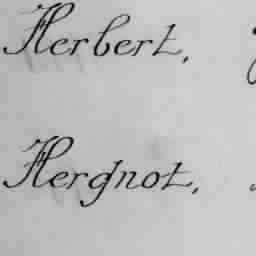 Herbert,
Hergnot,